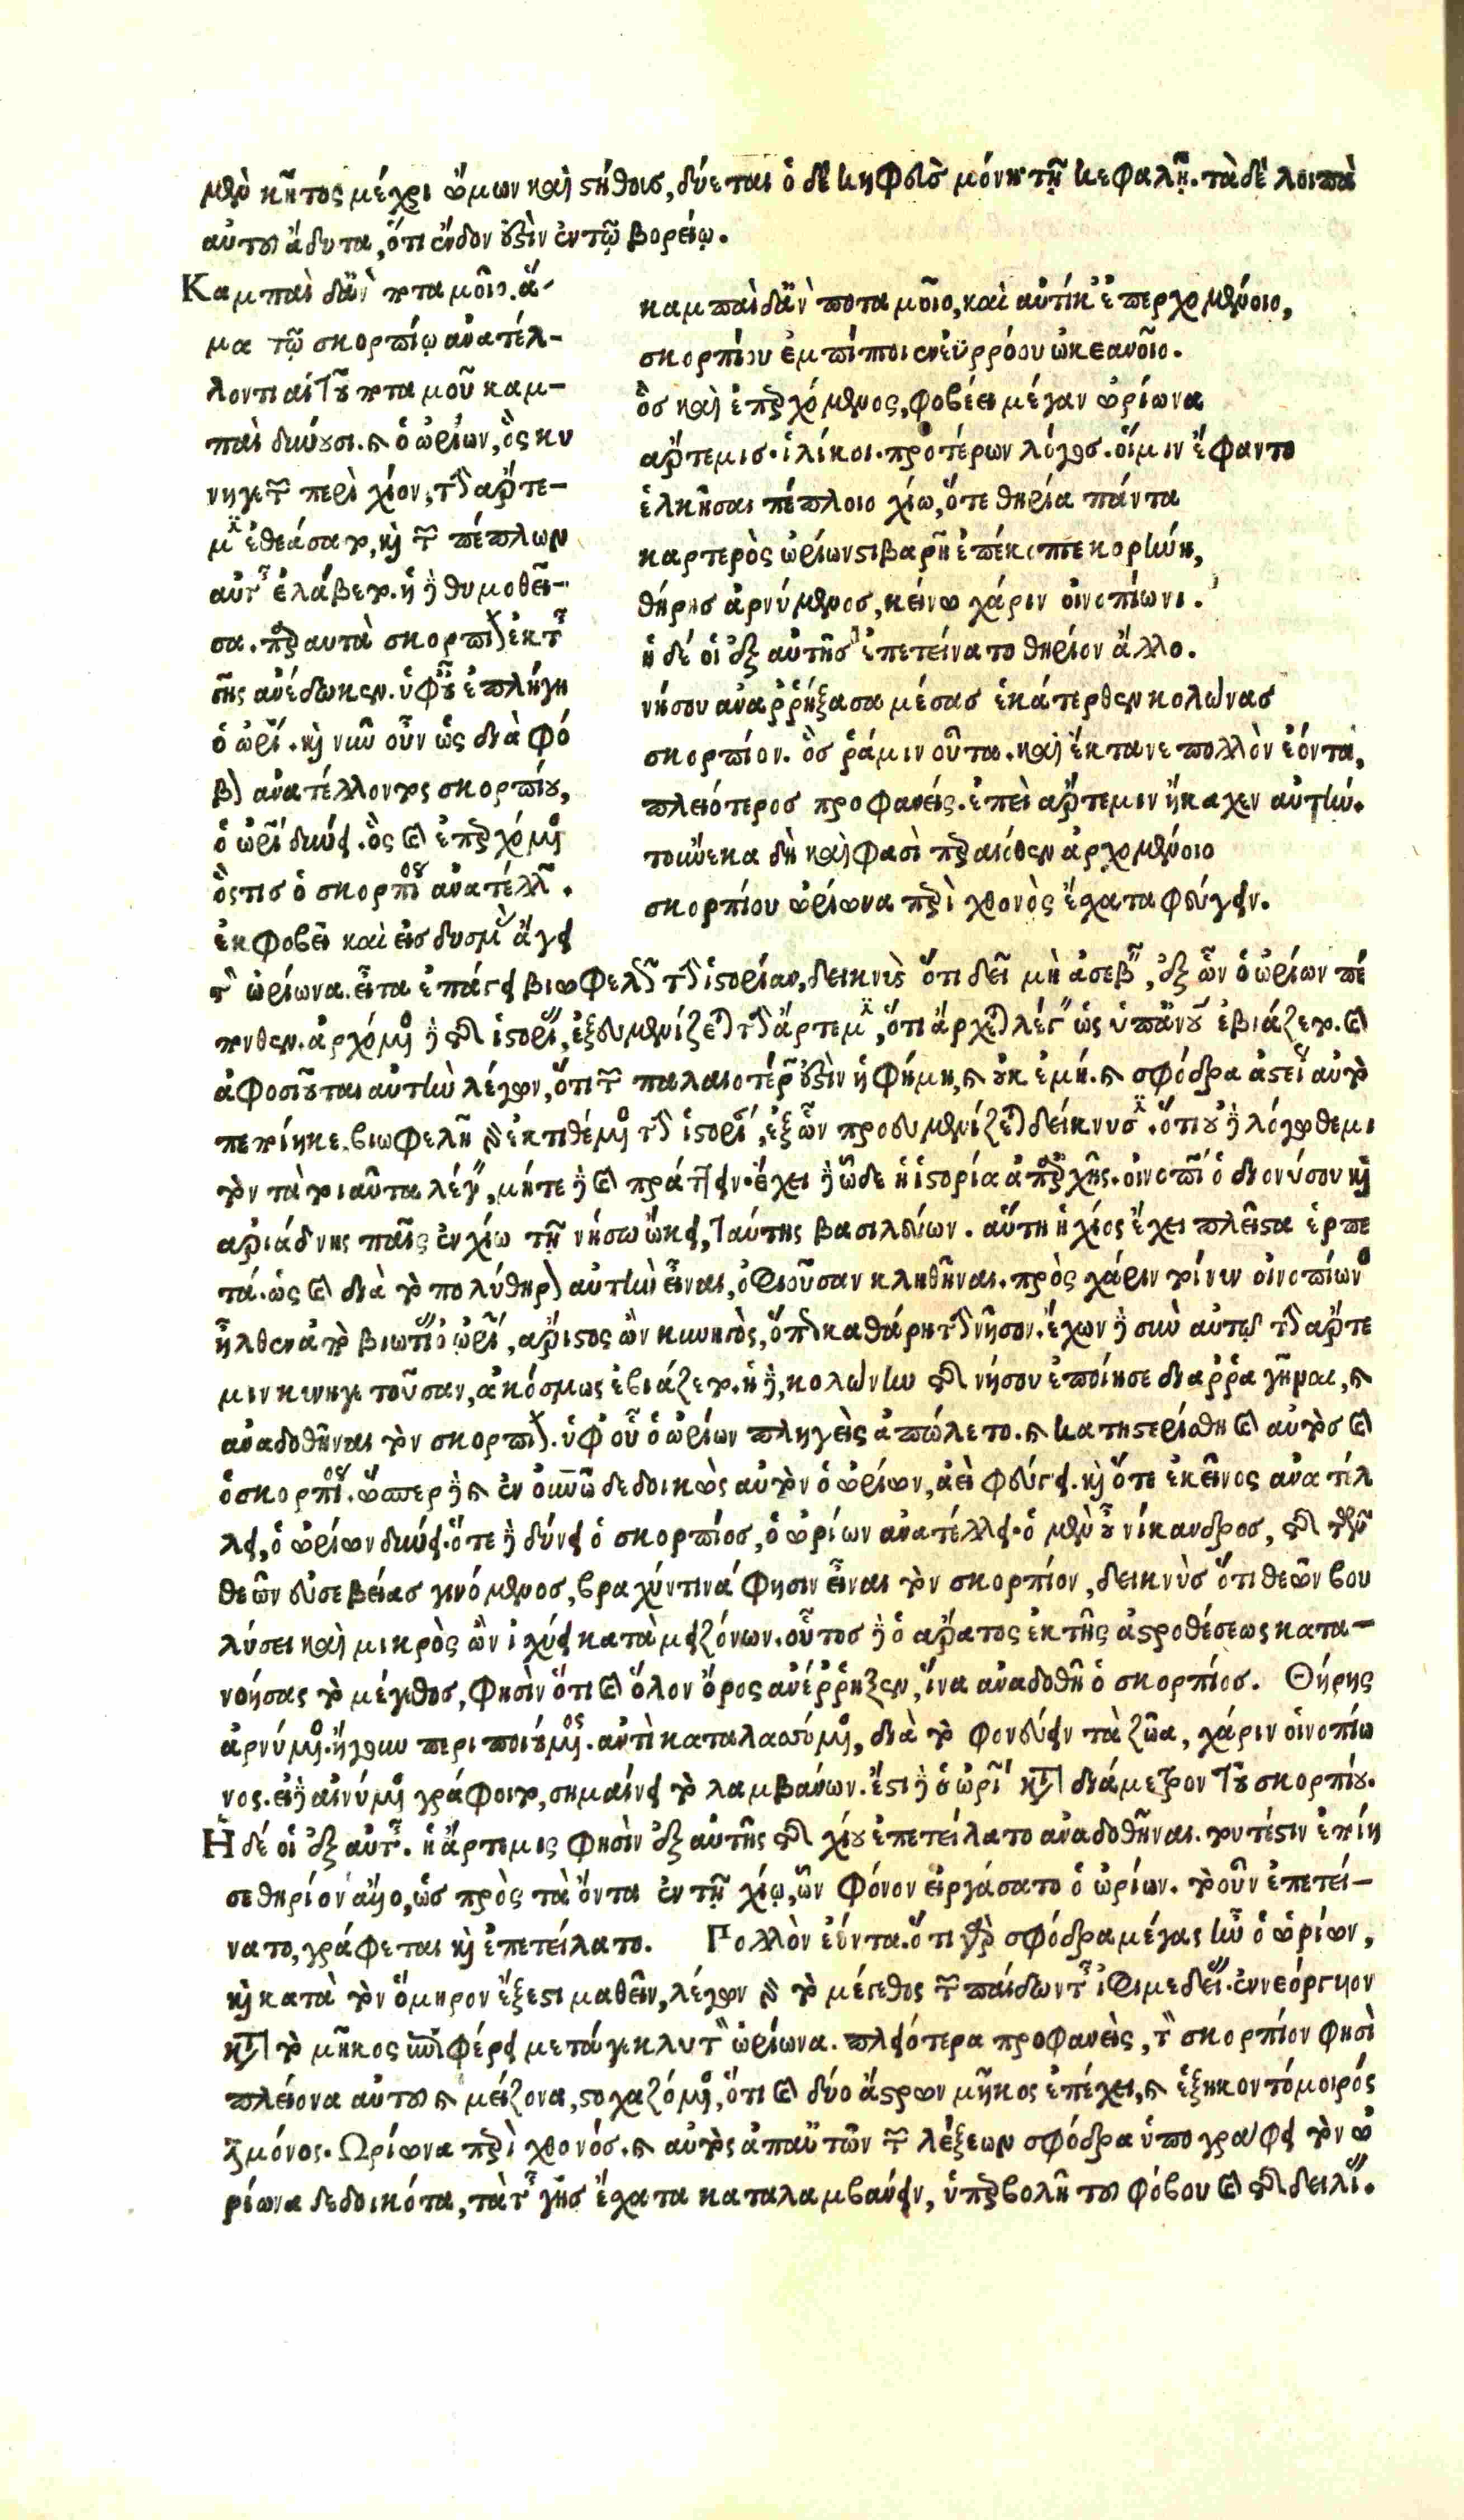 μὲν κῆτος μέχρι ὤμων καὶ στήθους, δύεται ὁ δὲ κηφεὺς μόνη τῇ κεφαλῇ. τὰ δὲ λοιπὰ
αὐτοῦ ἄδυτα, ὅτι ἔνδον ἐστὶν ἐν τῷ βορείῳ.
Καμπαὶ δ' ἂν ποταμοῖο. ἅ-
μα τῷ σκορπίῳ ἀνατέλ-
λοντι αἱ τοῦ ποταμοῦ καμ-
παὶ δύνουσι. καὶ ὁ ὠρίων, ὃς κυ
νηγετῶν περὶ χίον, τὴν ἄρτε-
μιν ἐθεάσατο, καὶ τῶν πέπλων
αὐτῆς ἐλάβετο. ἡ δὲ θυμωθεῖ-
σα. παραυτὰ σκορπίον ἐκ τῆς
γῆς ἀνέδωκεν. ὑφ' οὗ ἐπλήγη
ὁ ὠρίων. καὶ νῦν οὖν ὡς διὰ φό
βον ἀνατέλλοντος σκορπίου,
ὁ ὠρίων δύνει. ὃς καὶ ἐπερχόμενος
ὅστις ὁ σκορπίος ἀνατέλλων.
ἐκφοβεῖ καὶ εἰς δυσμὰς ἄγει
καμπαὶ δ' ἂν ποταμοῖο, καὶ αὐτίκ' ἐπερχομένοιο,
σκορπίου ἐμπίπτοι ἐν ἐϋρρόου ὠκεανοῖο.
ὃς καὶ ἐπερχόμενος, φοβέει μέγαν ὠρίωνα
ἄρτεμις. ἱλίκοι. προτέρων λόγος. οἵ μιν ἔφαντο
ἑλκῆσαι πέπλοιο χίῳ, ὅτε θηρία πάντα
καρτερὸς ὠρίων στιβαρῇ ἐπέκοπτε κορύνῃ,
θήρης ἀρνύμενος, κείνῳ χάριν οἰνοπίωνι.
ἡ δέ οἱ ἐξ αὐτῆς ἐπετείνατο θηρίον ἄλλο.
νήσου ἀναρρήξασα μέσας ἑκάτερθεν κολώνας
σκορπίον. ὅς ῥά μιν οὖτα. καὶ ἔκτανε πολλὸν ἐόντα,
πλειότερος προφανείς. ἐπεὶ ἄρτεμιν ἤκαχεν αὐτήν.
τοὔνεκα δὴ καὶ φασὶ περαιόθεν ἀρχομένοιο
σκορπίου ὠρίωνα περὶ χθονὸς ἔσχατα φεύγειν.
τὸν ὠρίωνα. εἶτα ἐπάγει βιωφελῆ τὴν ἱστορίαν, δεικνὺς ὅτι δεῖ μὴ ἀσεβεῖν, ἐξ ὧν ὁ ὠρίων πέ
πονθεν. ἀρχόμενος δὲ τῆς ἱστορίας, ἐξευμενίζεται τὴν ἄρτεμιν, ὅτι ἄρχεται λέγειν ὡς ὑπ' αὐτοῦ ἐβιάζετο. καὶ
ἀφοσιοῦται αὐτὴν λέγων, ὅτι τῶν παλαιοτέρων ἐστὶν ἡ φήμη, καὶ οὐκ ἐμή. καὶ σφόδρα ἀστείως αὐτὸ
πεποίηκε. βιωφελῆ γὰρ ἐκτιθέμενος τὴν ἱστορίαν, ἐξ ὧν προευμενίζεται δείκνυσιν. ὅτι οὐ δὲ λόγῳ θεμι
τὸν τὰ τοιαῦτα λέγειν, μήτε γε καὶ πράττειν. ἔχει δὲ ὧδε ἡ ἱστορία ἀπ' ἀρχῆς. οἰνοπίων ὁ διονύσου καὶ
ἀριάδνης παῖς ἐν χίῳ τῇ νήσῳ ᾤκει, ταύτης βασιλεύων. αὕτη ἡ χίος ἔχει πλεῖστα ἑρπε
τά. ὡς καὶ διὰ τὸ πολύθηρον αὐτὴν εἶναι, ὀφιοῦσαν κληθῆναι. πρὸς χάριν τοίνυν οἰνοπίωνος
ἦλθεν ἀπὸ βιωτίας ὁ ὠρίων, ἄριστος ὢν κυνηγὸς, ὅπως καθάρῃ τὴν νῆσον. ἔχων δὲ σὺν αὐτῷ τὴν ἄρτε
μιν κυνηγετοῦσαν, ἀκόσμως ἐβιάζετο. ἡ δὲ, κολώνην τῆς νήσου ἐποίησε διαρραγῆναι, καὶ
ἀναδοθῆναι τὸν σκορπίον. ὑφ' οὗ ὁ ὠρίων πληγεὶς ἀπώλετο. καὶ κατηστερίσθη καὶ αὐτὸς καὶ
ὁ σκορπίος. ὥσπερ δὲ καὶ ἐν οὐρανῷ δεδοικὼς αὐτὸν ὁ ὠρίων, ἀεὶ φεύγει. καὶ ὅτε ἐκεῖνος ἀνατέλ
λει, ὁ ὠρίων δύνει. ὅτε δὲ δύνει ὁ σκορπίος, ὁ ὠρίων ἀνατέλλει. ὁ μὲν οὖν νίκανδρος, τῆς τῶν
θεῶν εὐσεβείας γινόμενος, βραχύν τινά φησιν εἶναι τὸν σκορπίον, δεικνὺς ὅτι θεῶν βου
λύσει καὶ μικρὸς ὢν ἰσχύει κατὰ μειζόνων. οὗτος δὲ ὁ ἄρατος ἐκ τῆς ἀστροθέσεως κατα-
νοήσας τὸ μέγεθος, φησὶν ὅτι καὶ ὅλον ὄρος ἀνέρρηξεν, ἵνα ἀναδοθῇ ὁ σκορπίος. Θήρης
ἀρνύμενος. ἤγουν περιποιούμενος. ἀντὶ καταλαβόμενος, διὰ τὸ φονεύειν τὰ ζῶα, χάριν οἰνοπίω
νος. εἰ δὲ αἰνύμενος γράφοιτο, σημαίνει τὸ λαμβάνων. ἔστι δὲ ὁ ὠρίων κατὰ διάμετρον τοῦ σκορπίου.
Ἡ δέ οἱ ἐξ αὐτῆς. ἡ ἄρτεμις φησὶν ἐξ αὐτῆς τῆς χίου ἐπετείλατο ἀναδοθῆναι. τουτέστιν ἐποίη
σε θηρίον ἄλλο, ὡς πρὸς τὰ ὄντα ἐν τῇ χίῳ, ὧν φόνον εἰργάσατο ὁ ὠρίων. τὸ οὖν ἐπετεί-
νατο, γράφεται καὶ ἐπετείλατο. Πολλὸν ἐόντα. ὅτι γὰρ σφόδρα μέγας ἦν ὁ ὠρίων,
καὶ κατὰ τὸν ὅμηρον ἔξεστι μαθεῖν, λέγων γὰρ τὸ μέγεθος τῶν παίδων τῆς ἰφιμεδείας. ἐννεόργυιον
κατὰ τὸ μῆκος ἐπιφέρει μετά γε κλυτὸν ὠρίωνα. πλειότερα προφανεὶς, τὸν σκορπίον φησὶ
πλείονα αὐτοῦ καὶ μείζονα, στοχαζόμενος, ὅτι καὶ δύο ἄστρων μῆκος ἐπέχει, καὶ ἑξηκοντόμοιρός
ἐστι μόνος. Ὠρίωνα περὶ χθονός. καὶ αὐτὸς ἀπ' αὐτῶν τῶν λέξεων σφόδρα ὑπογράφει τὸν ὠ
ρίωνα δεδοικότα, τὰ τῆς γῆς ἔσχατα καταλαμβάνειν, ὑπερβολῇ τοῦ φόβου καὶ τῆς δειλίας.